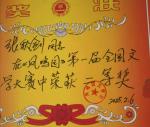 奖状
张钦剑 同志
在《凤鸣园》第一届全国文
学大赛中荣获 二等奖
2005.2.6